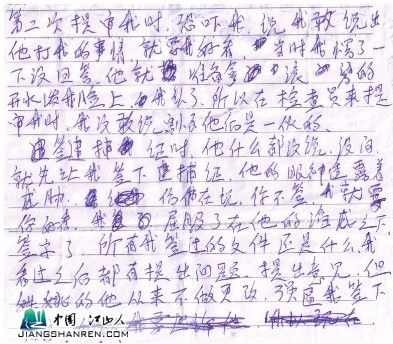 第二次提审我时,恐吓我,说我敢说出
他打我的事情就要我好看,当时我愣了一
下没回答,他就 滚 的
开水泼我脸上,我认了,所以在检查员来提
审我时,我没敢说,我怕他们是一伙的。
签逮捕证时,他什么都没说,没问,
就先让我签下逮捕证,他的眼神透露着
威胁,仿佛在说,你不签,我就要
你好看,我屈服了在他的淫威之下
签字了,所有我签过的文件还是什么,我
看过之后都有提出问题,提出意见,但
姓姚的他从来不做更改,强逼我签下
中国·江山人
JIANGSHANREN.COM